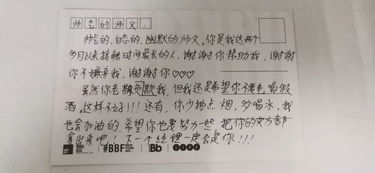 帅气的师文：
帅气的、自恋的、幽默的师文，你是我这两个
多月以来接触时间最长的人，谢谢你帮助我，谢谢
你不嫌弃我，谢谢你♡♡♡
虽然你老欺负我，但我还是希望你不要老喝假
酒，这样不好!!! 还有，你少抽点烟，多喝水，我
也会加油的，希望你也要努力一些，把你的实力都
拿出来吧！下一个 一定会是你!!!
#BBF Bb